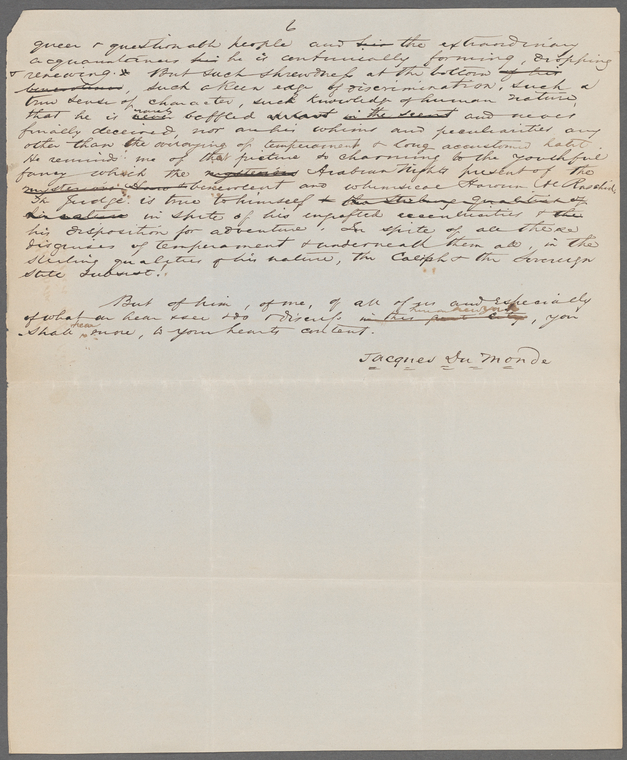 6
queer & questionable people and his the extraordinary
acquaintances his he is continually forming, dropping
& renewing. But such shrewdness at the bottom of his
such a keen edge of discrimination, such a
true sense of character, such knowledge of human nature,
that he is never rarely baffled in the second and never
finally deceived, nor are his whims and peculiarities any
other than the outgoing of temperament & long accustomed habit.
He reminds me of that picture so charming to the youthful
fancy which the mysterious Arabian Nights present of the
mysterious benevolent and whimsical Haroun Al Raschid.
The Judge is true to himself & the sterling qualities of
his nature in spite of his eccentricities & the
his disposition for adventure. In spite of all these
disguises of temperament & underneath them all, in the
sterling qualities of his nature, the Caliph & the Sovereign
State subsist.
But of him, of me, of all of us and especially
of what we hear & see & do & discuss in this great City here in New York, you
shall hear more, to your hearts content.
Jacques Du Monde